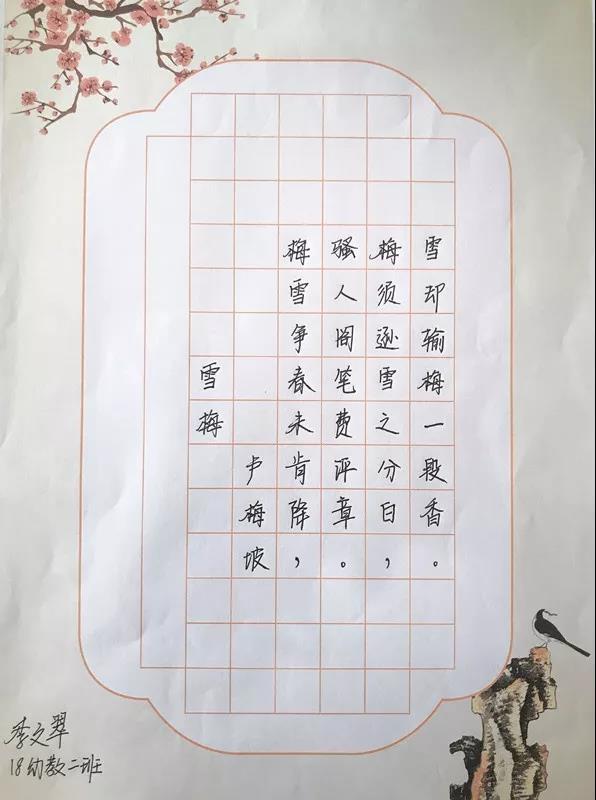 雪梅
卢梅坡
梅雪争春未肯降，
骚人阁笔费评章。
梅须逊雪之分白，
雪却输梅一段香。
季文翠
18幼教二班